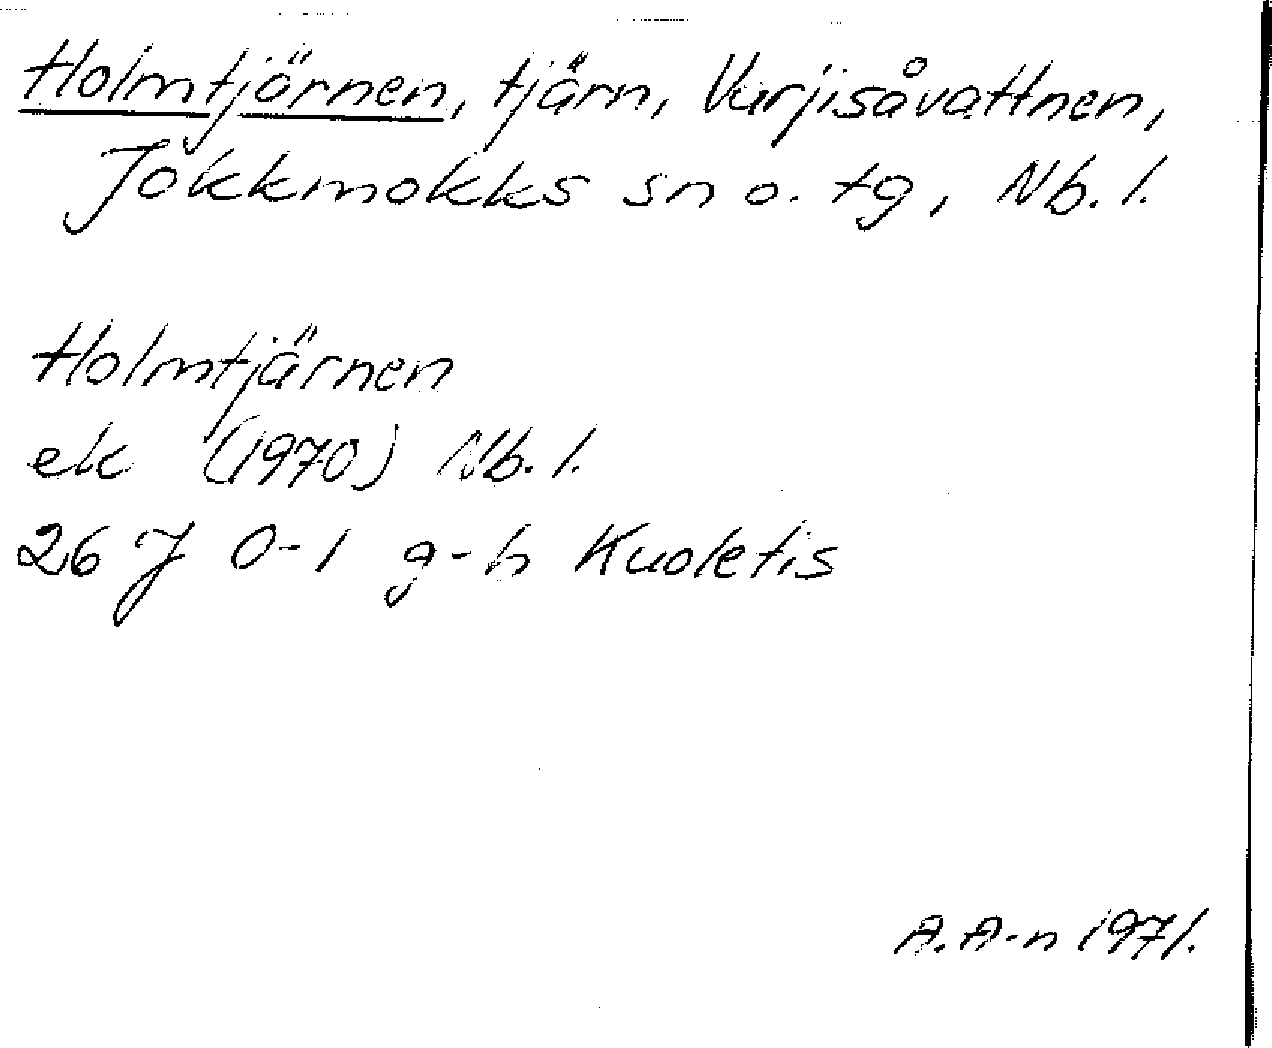 Holmtjärnen, tjärn, Varjisåvattnen,
Jokkmokks sn o. tg, Nb. l.
Holmtjärnen
ek (1970) Nb. l.
26 J 0-1 g-h Kuoletis
A. A-n 1971.